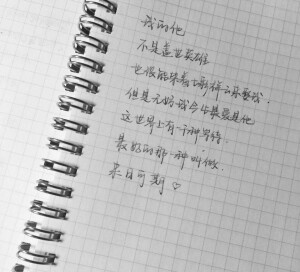 我的他
不是盖世英雄
也很能踩着七彩祥云来娶我.
但是无妨 我今生最爱是他
这世界上有一千种等待.
最好的那一种叫做
来日可期♡